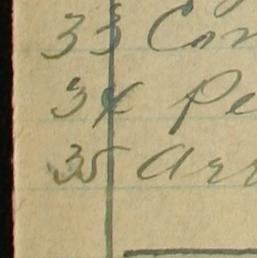 33 Con
34 Pe
35 arr